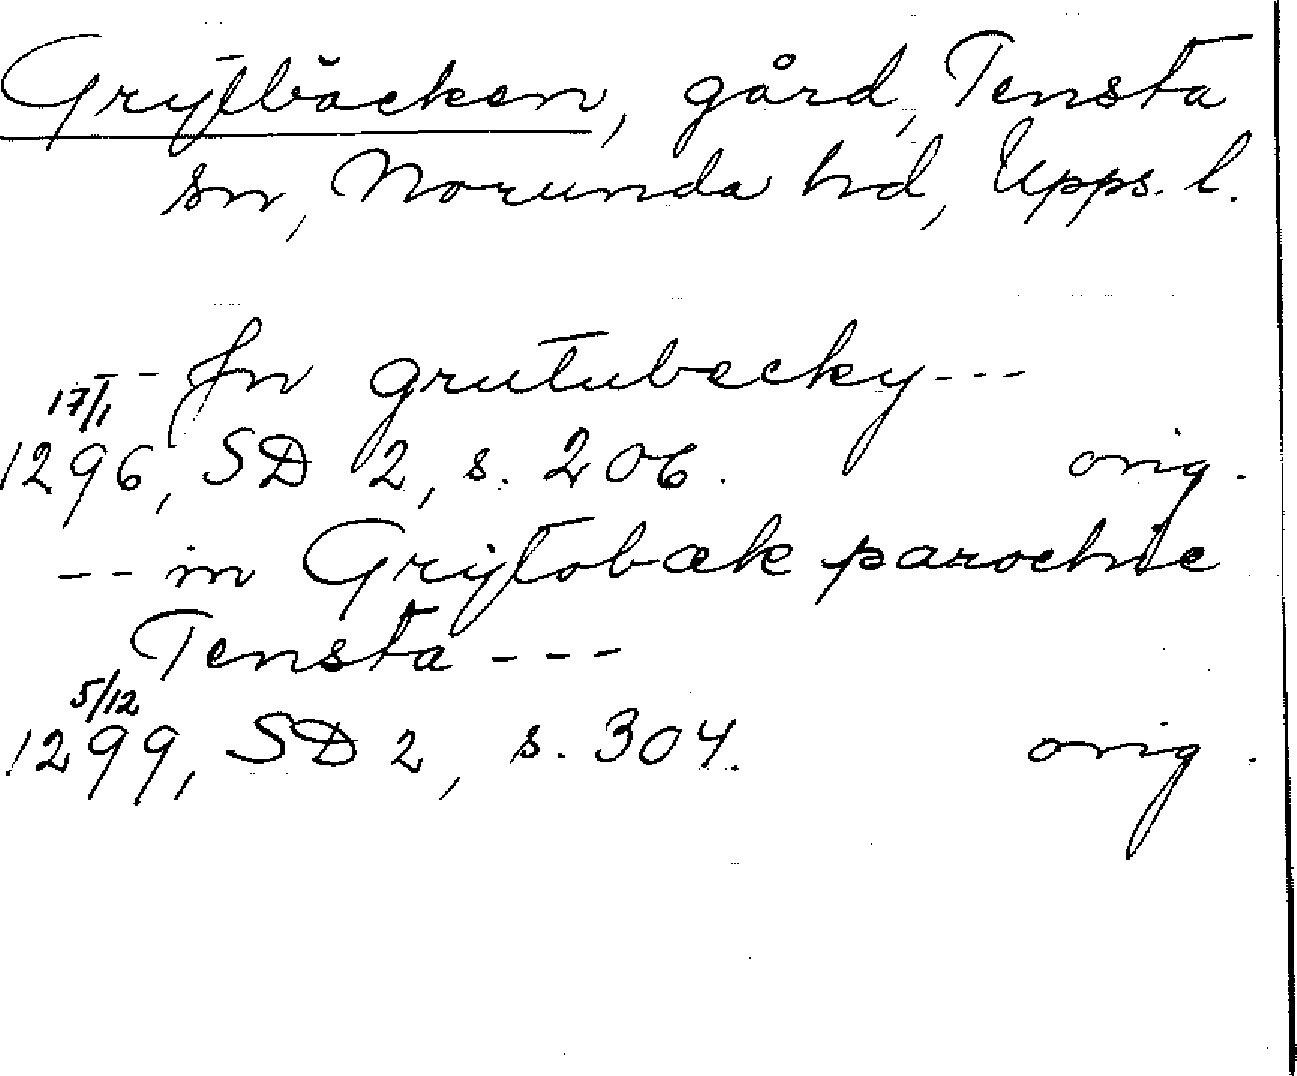 Grytbäcken, gård, Tensta
sn, Norunda hd, Upps. l.
--- Jn grutubecky ---
17/1
1296, SD 2, s. 206. orig.
-- in Grytobæk parochie
Tensta ---
5/12
1299, SD 2, s. 304. orig.